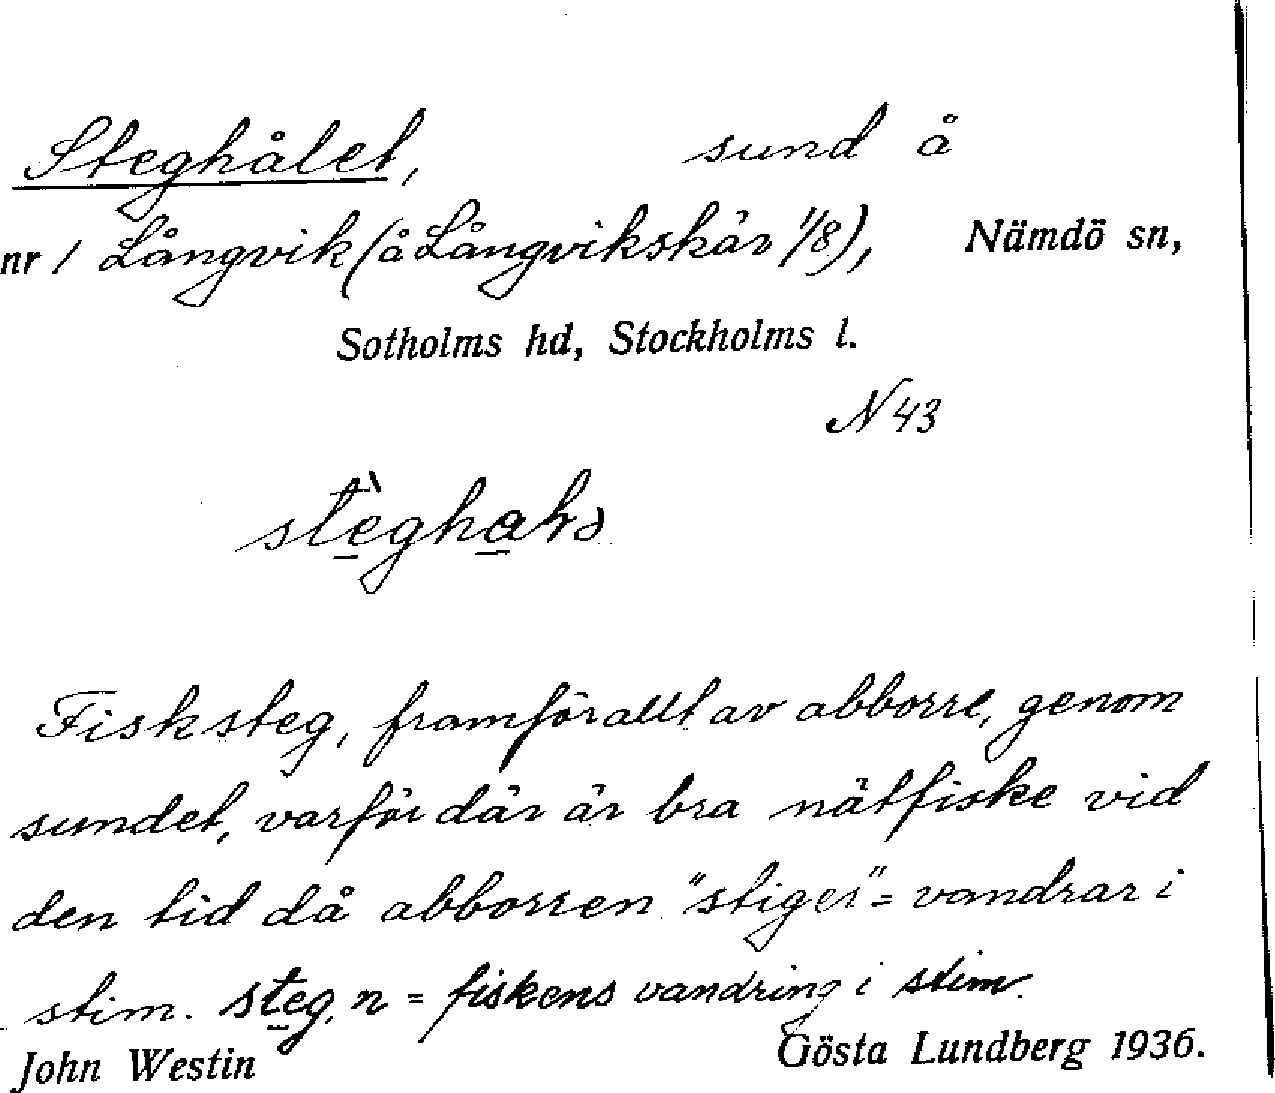 Steghålet, sund å
nr 1 Långvik (å Långvikskär 1/8), Nämdö sn,
Sotholms hd, Stockholms l.
N 43
Fisksteg, framförallt av abborre, genom
sundet, varför där är bra nätfiske vid
den tid då abborren "stiger" = vandrar i
stim. steg, n = fiskens vandring i stim.
John Westin Gösta Lundberg 1936.